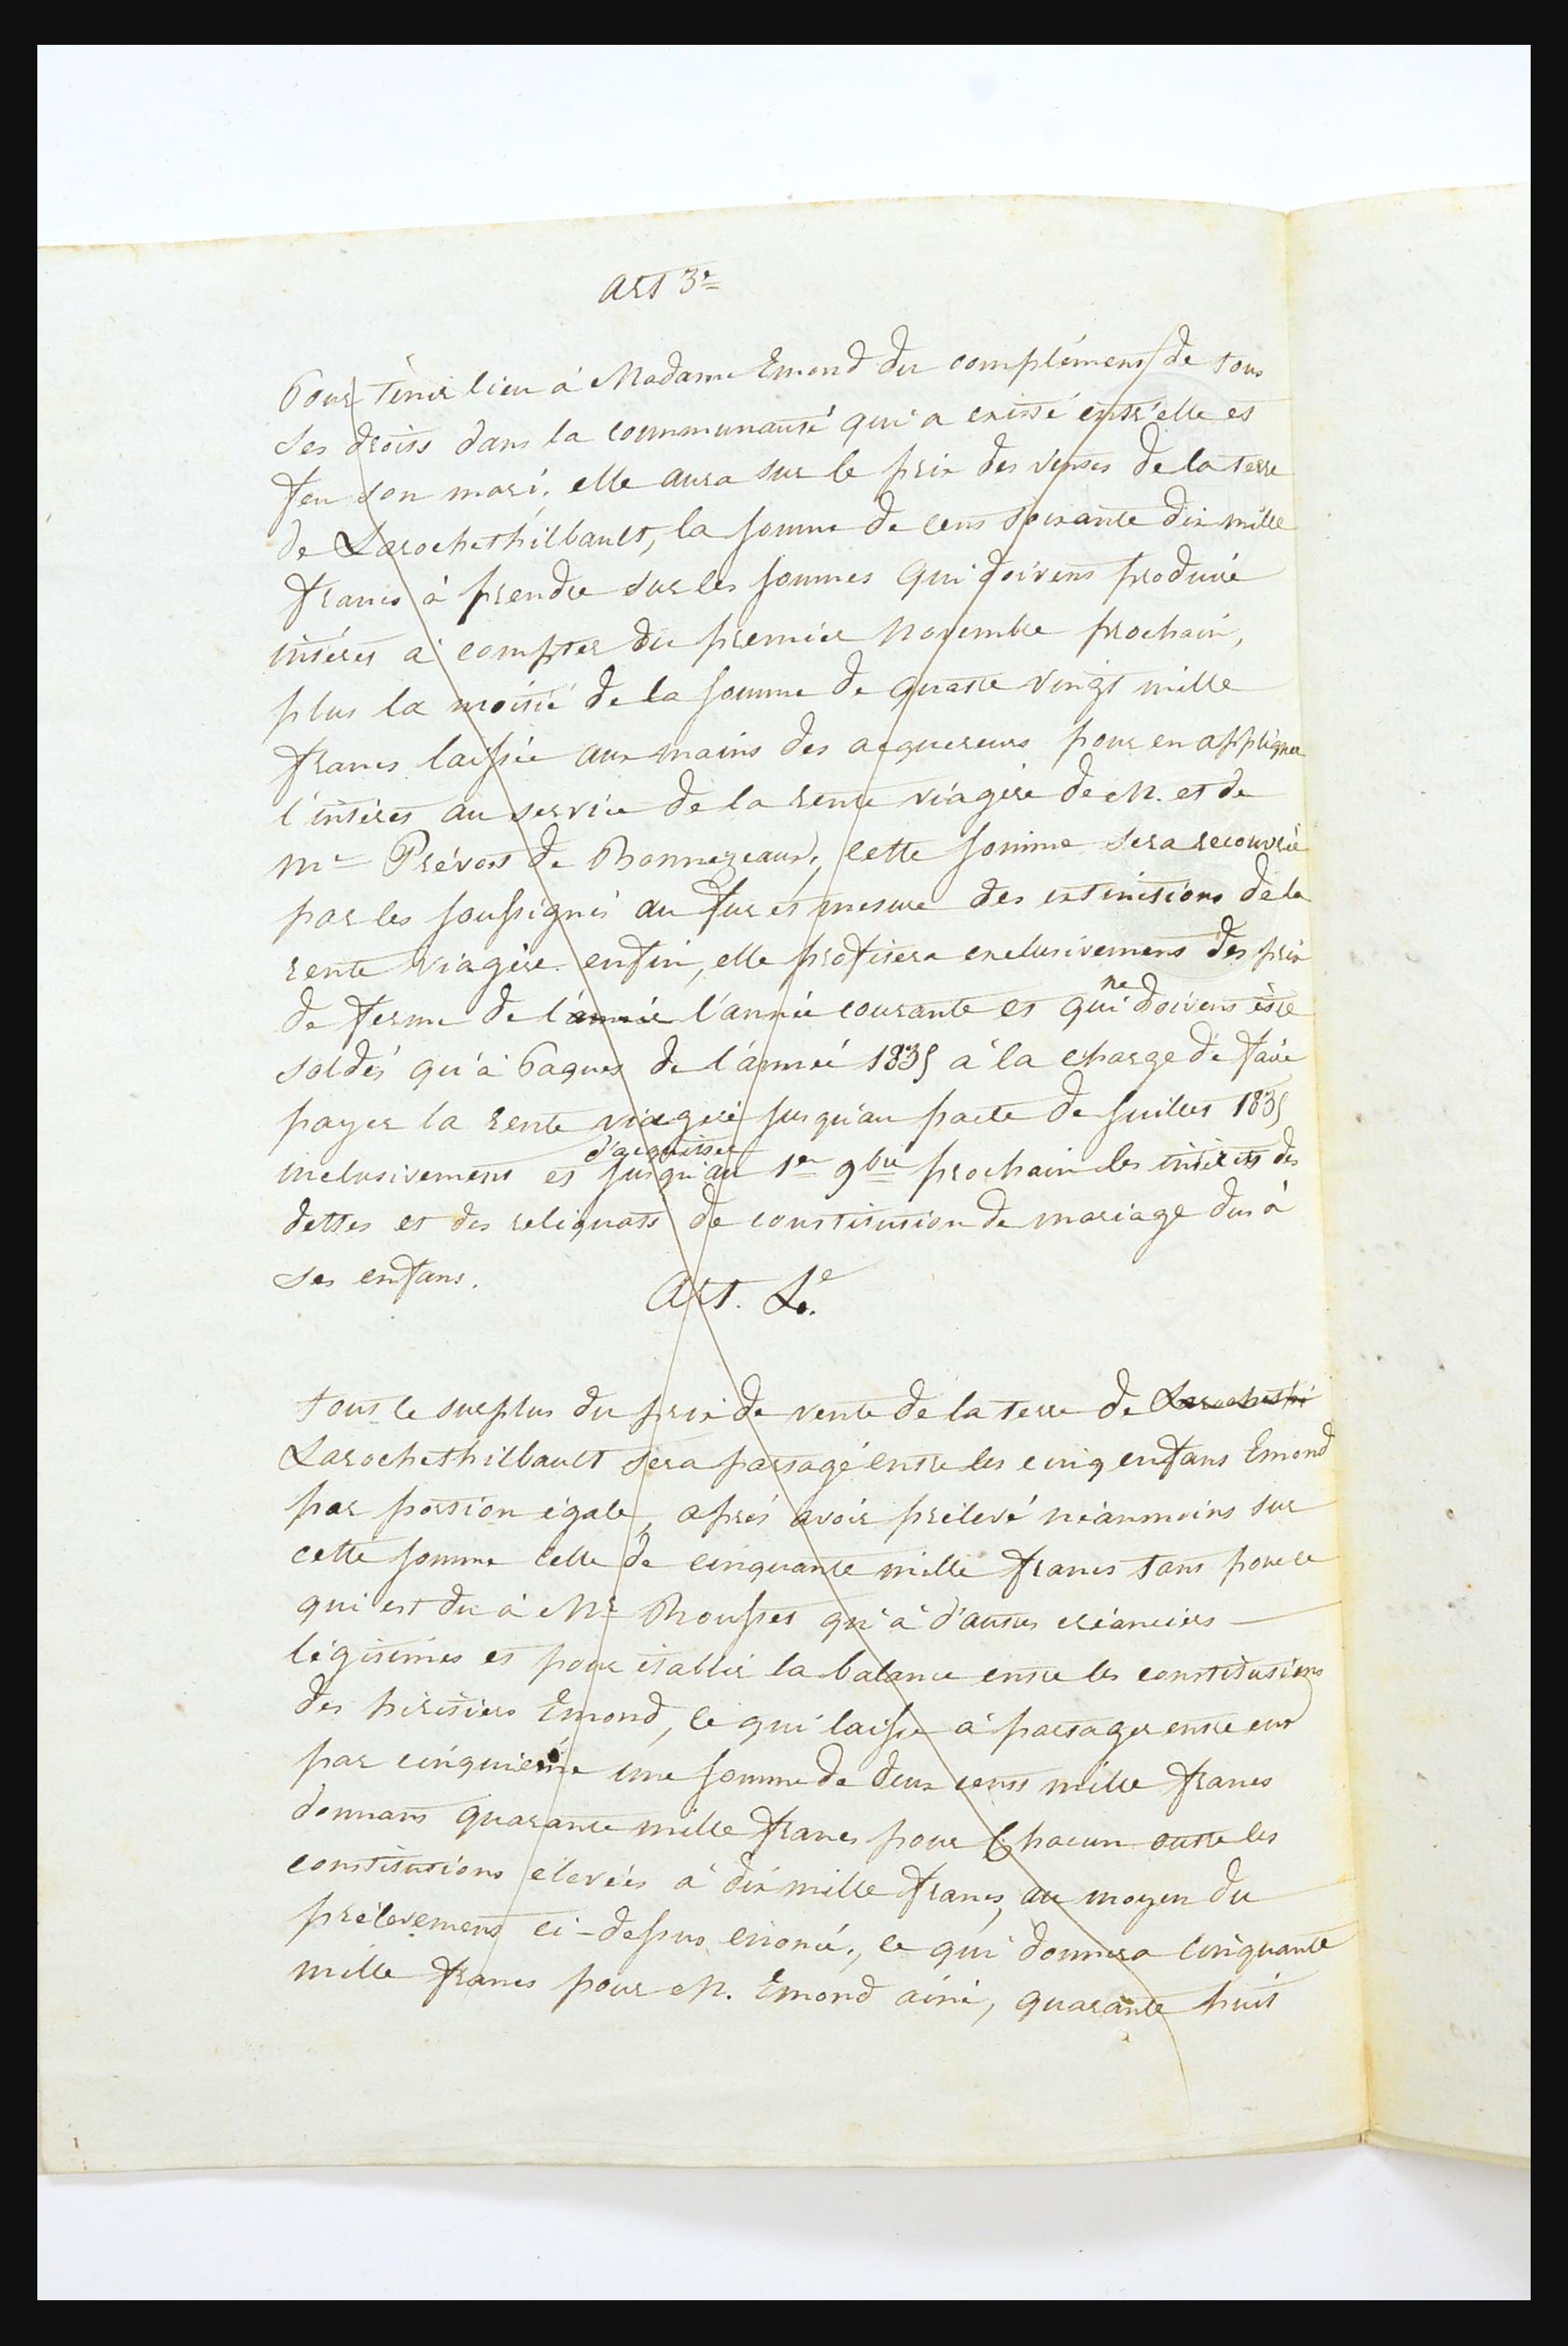 Art 3e
Pour tenir lieu à Madame Emond du complément de tous
ses droits dans la communauté qui a existé entr'elle et
feu son mari, elle aura sur le prix des ventes de la terre
de Larochethilbault, la somme de cent soixante dix mille
francs à prendre sur les sommes qui doivent produire
intérêt à compter du premier novembre prochain,
plus la moitié de la somme de quatre vingt mille
francs laissée aux mains des acquereurs pour en appliquer
l'intérêt au service de la rente viagère de M. et de
Me Prévost de Bonnezeaux, cette somme sera recouvrée
par les soussignés au fur et mesure des extinctions de la
rente viagère. enfin, elle profitera exclusivement des prix
de ferme de l'année l'année courante et qui ne doivent être
soldés qu'à Paques de l'année 1835 à la charge de faire
payer la rente viagère jusqu'au pacte de Juillet 1835
inclusivement et d'acquitter jusqu'au 1er 9bre prochain les intérêts des
dettes et des reliquats de constitution de mariage dus à
ses enfans.
Art. 4e.
Tout le surplus du prix de vente de la terre de Larochethi
Larochethilbault sera partagé entre les cinq enfans Emond
par portion égale, après avoir prélevé néanmoins sur
cette somme celle de cinquante mille francs tant pour ce
qui est du à Mr Rousset qu'à d'autres créanciers
légitimes et pour établir la balance entre les constitutions
des héritiers Emond, ce qui laisse à partager entre eux
par cinquième une somme de deux cents mille francs
donnant quarante mille francs pour Chacun outre les
constitutions élevées à dix mille francs au moyen du
prélevement ci-dessus énoncé, ce qui donnera cinquante
mille francs pour M. Emond ainé, quarante huit